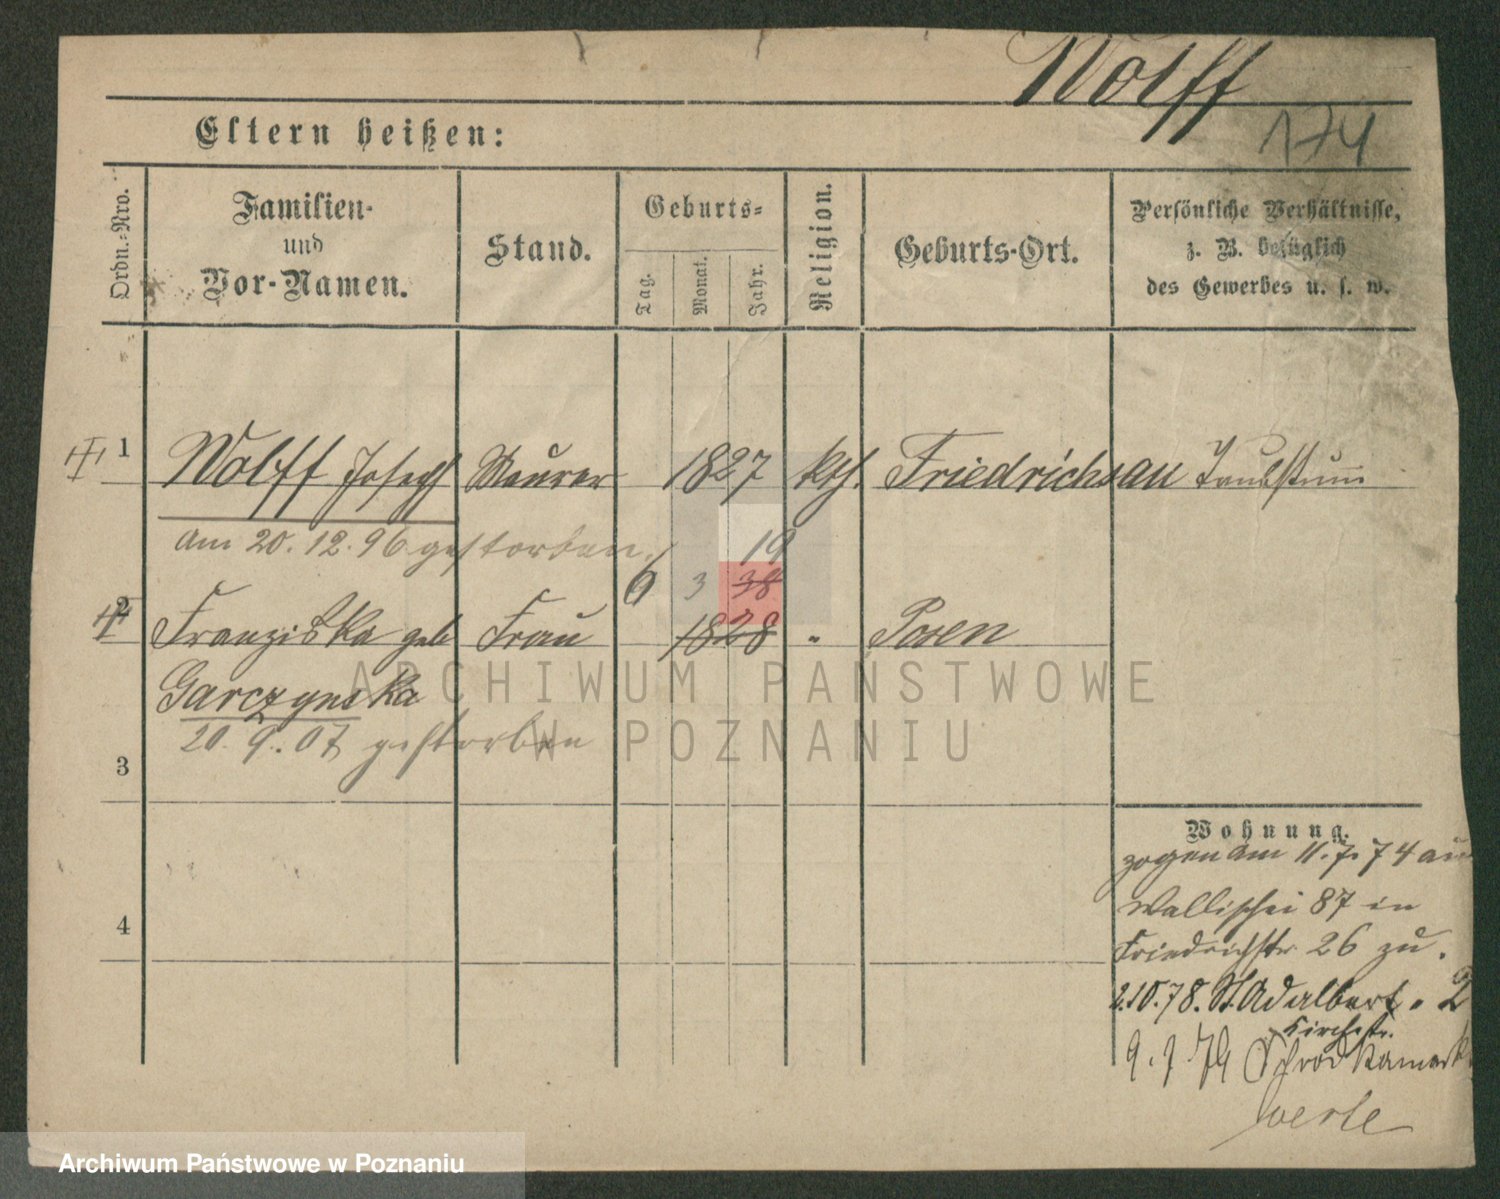 Wolff
174
Eltern heißen:
Ordn.-Nro.
Familien-
und
Vor-Namen.
Stand.
Geburts-
Tag.
Monat.
Jahr.
Religion.
Geburts-Ort.
Persönliche Verhältnisse,
z. B. bezüglich
des Gewerbes u. s. w.
1 Wolff Joseph Maurer 1827 kth. Friedrichsau Taubstumm
am 20.12.96 gestorben.
19
6 3 38
2 Franziska geb Frau 1828 " Posen
Garczynska
20.9.07 gestorben
3
Wohnung.
zogen am 11.7.74 aus
Wallischei 87 in
4
Friedrichstr 26 zu.
2.10.78. St. Adalbert. 2
Kirchstr.
9.9.79 Schrodkamark
ARCHIWUM PAŃSTWOWE
W POZNANIU
Archiwum Państwowe w Poznaniu